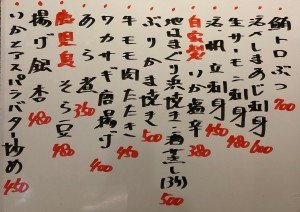 鮪トロぶつ 700
活〆しまあじ刺身 600
生サーモン刺身 480
活・帆立刺身 450
自家製 いか塩辛 380
地はまぐり焼き・酒蒸し(3ヶ) 500
ぶりかま焼き 500
牛モモ肉たたき 450
ワカサギ唐揚げ 400
あら煮 350
鹿児島 そら豆 480
揚げ銀杏 480
いかとアスパラバター炒め 450